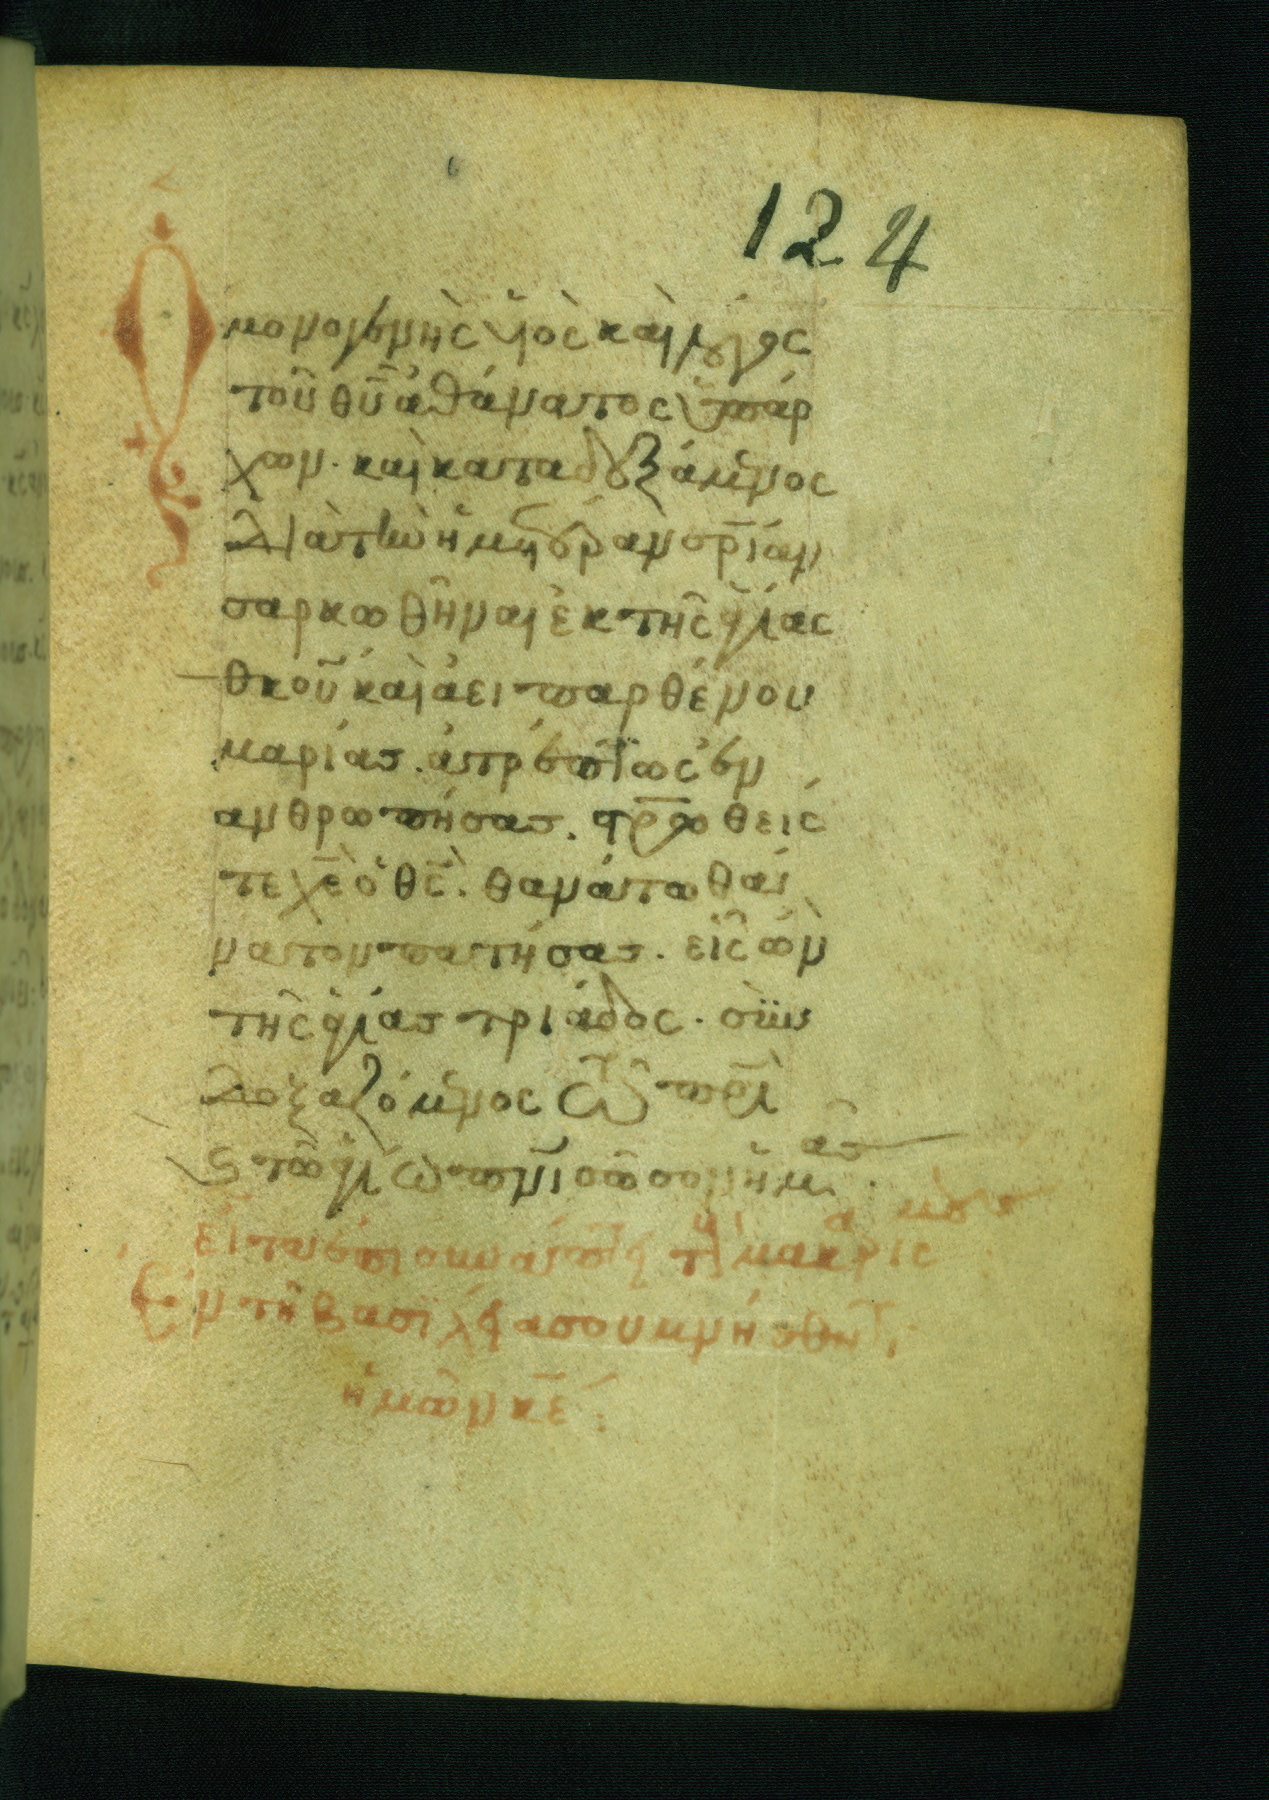 124
Ὁ μονογενὴς υἱὸς καὶ λόγος
τοῦ θυ ἀθάνατος ὑπάρ
χων. καὶ καταδεξάμενος
διὰ τὴν ἡμετέραν σρίαν
σαρκωθῆναι ἐκ τῆς ἁγίας
θκου καὶ ἀει παρθένου
μαρίας. ἀτρέπτως ἐν
ανθρωπήσας. στρωθείς
τε χὲ ὁ θς. θανάτω θάν
νατον πατήσας. εἷς ὢν
τῆς ἁγίας τριάδος. συν
δοξαζόμενος τῶ πρὶ
καὶ τῶ ἁγίω πνι σῶσον ἡμᾶς.
Ἐν τῆ βασιλεία σου μνήσθητι
ἡμῶν κε: